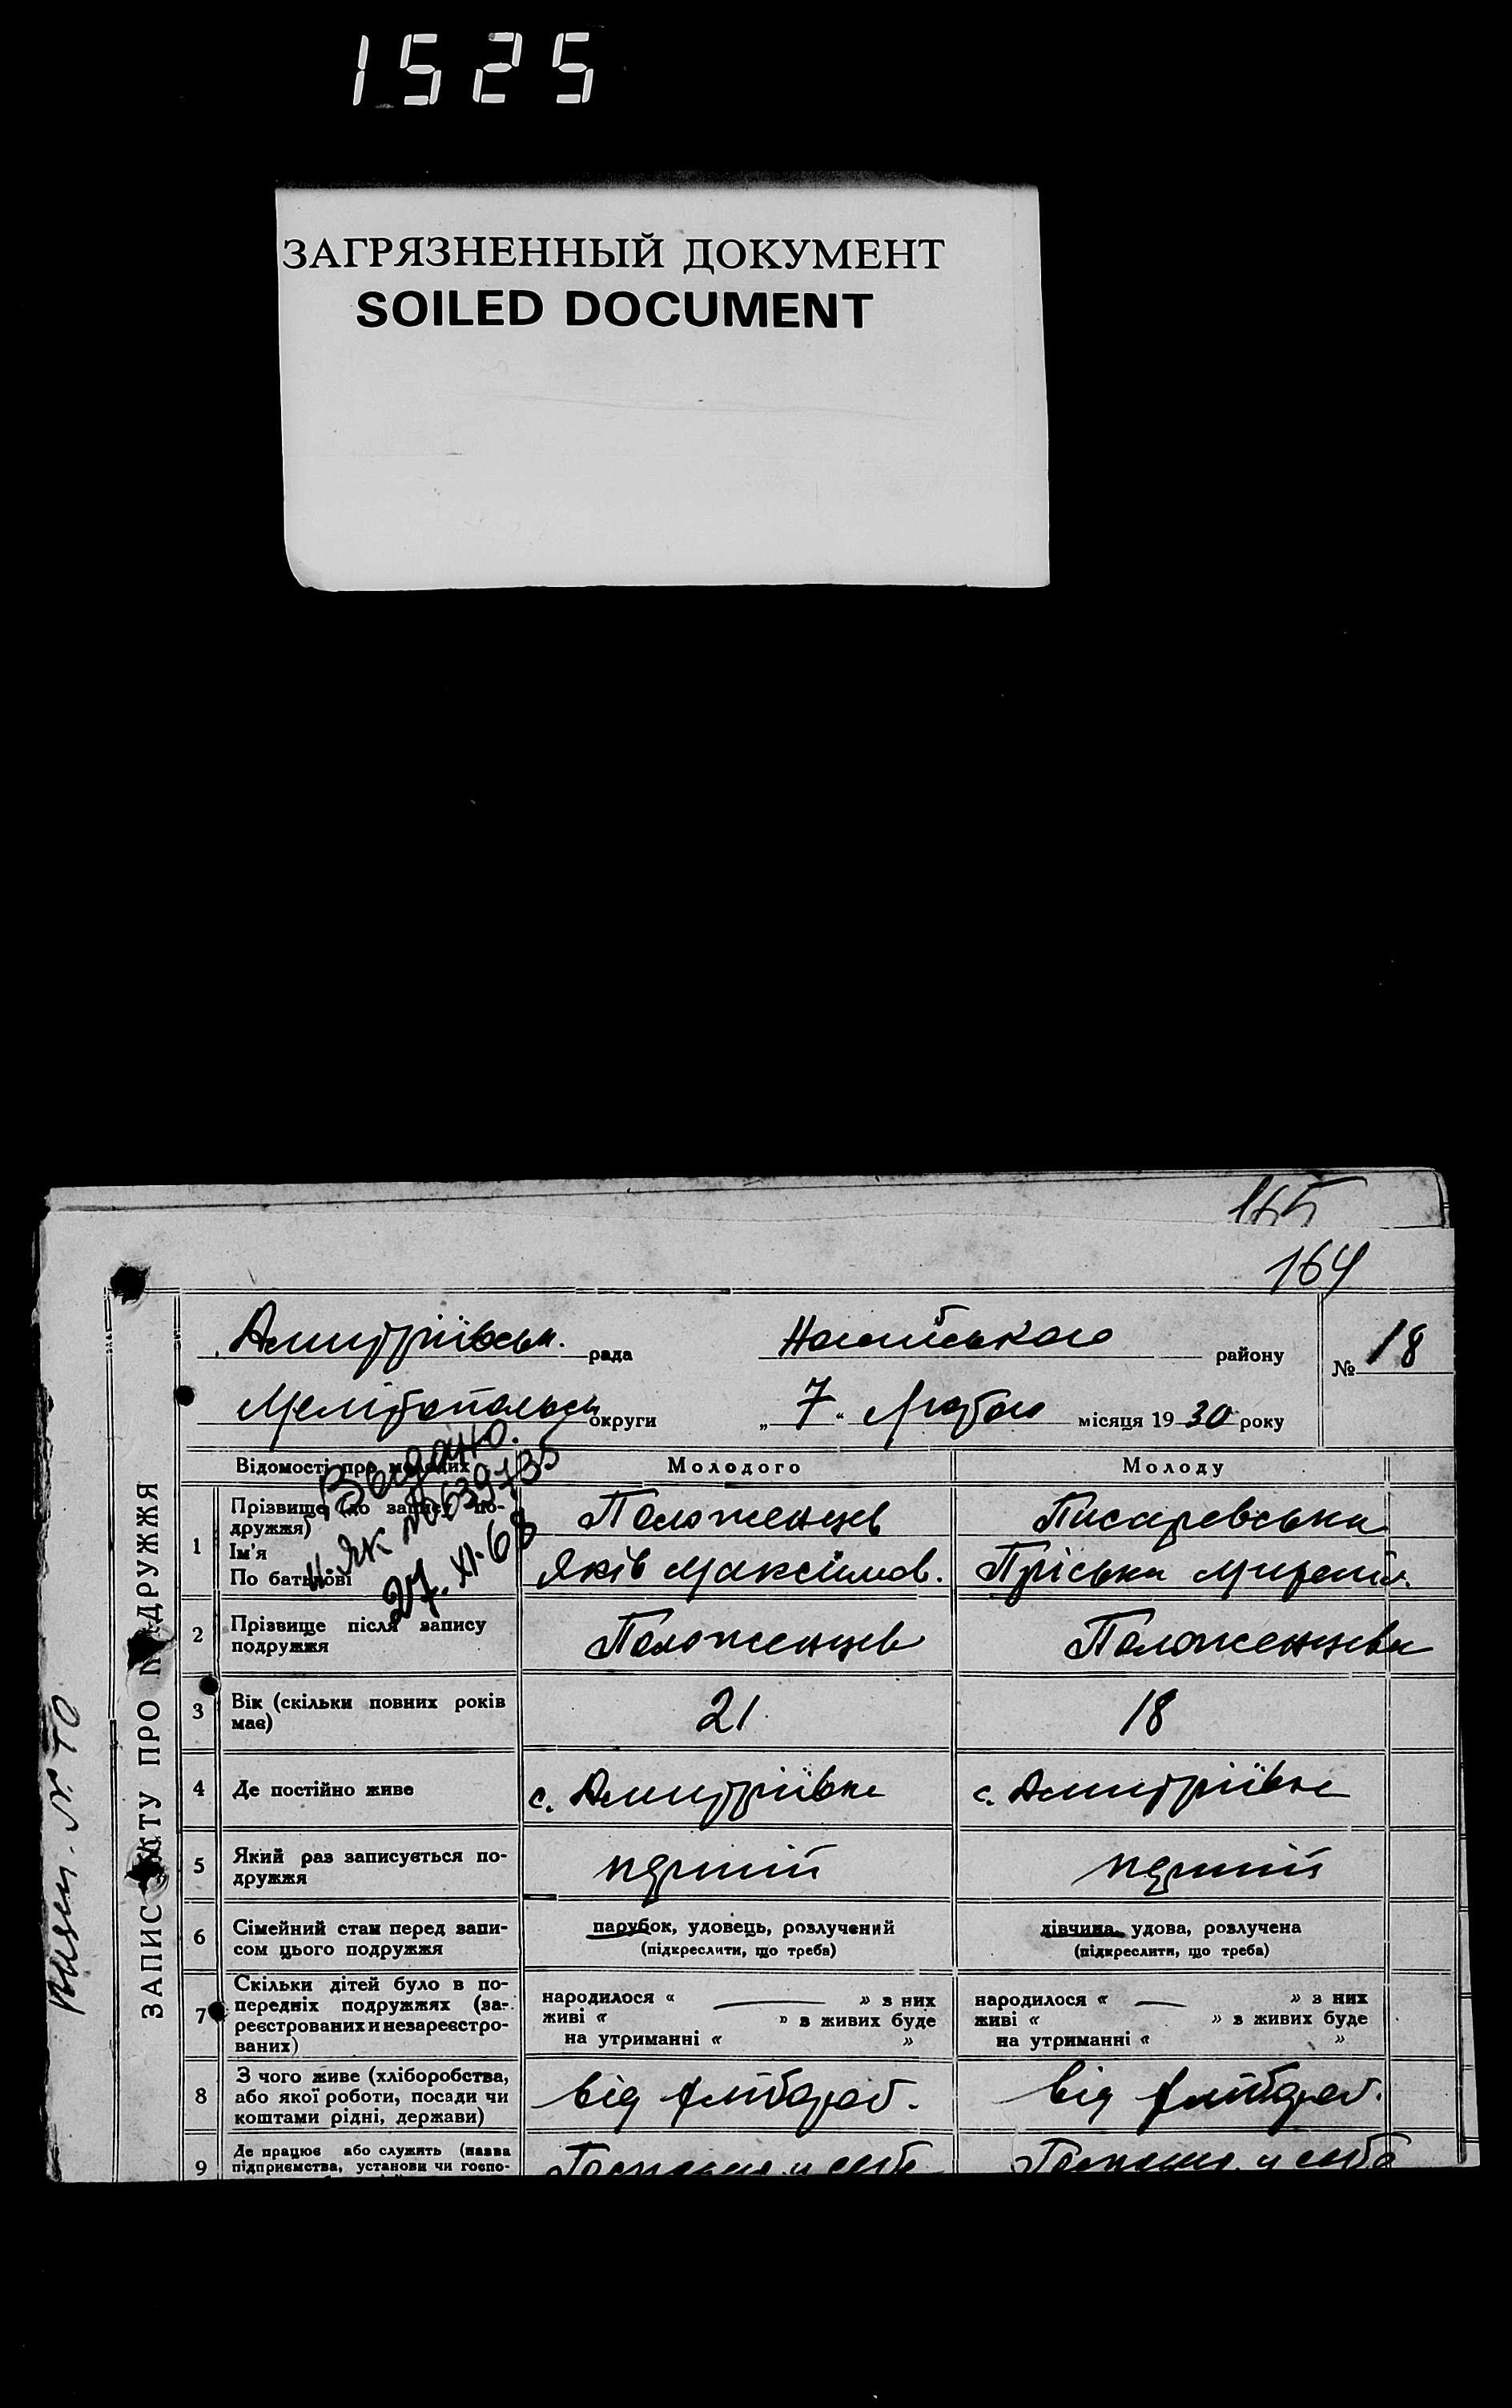 1525
ЗАГРЯЗНЕННЫЙ ДОКУМЕНТ
SOILED DOCUMENT
165
164
Дмитріївськ. рада Ногайського району № 18
Мелітопольськ округи „ 7 “ Лютого місяця 1930 року
ЗАПИС АКТУ ПРО ПОДРУЖЖЯ
Видано.
27.XI-68
Відомості про молодих Молодого Молоду
1 Прізвище (до запису по-
дружжя) Положенцев Писаревська
Ім'я
По батькові Яків Максимов. Пріська Миронів.
2 Прізвище після запису
подружжя Положенцев Положенцева
3 Вік (скільки повних років
має) 21 18
4 Де постійно живе с. Дмитріївка с. Дмитріївка
5 Який раз записується по-
дружжя перший перший
6 Сімейний стан перед запи-
сом цього подружжя парубок, удовець, розлучений дівчина, удова, розлучена
(підкреслити, що треба) (підкреслити, що треба)
7 Скільки дітей було в по-
передніх подружжях (за-
реєстрованих и незареєстро-
ваних)
народилося « — » з них народилося « — » з них
живі « » з живих буде живі « » з живих буде
на утриманні « » на утриманні « »
8 З чого живе (хліборобства,
або якої роботи, посади чи
коштами рідні, держави) від хлібороб. від хлібороб.
9 Де працює або служить (назва
підприємства, установи чи госпо-